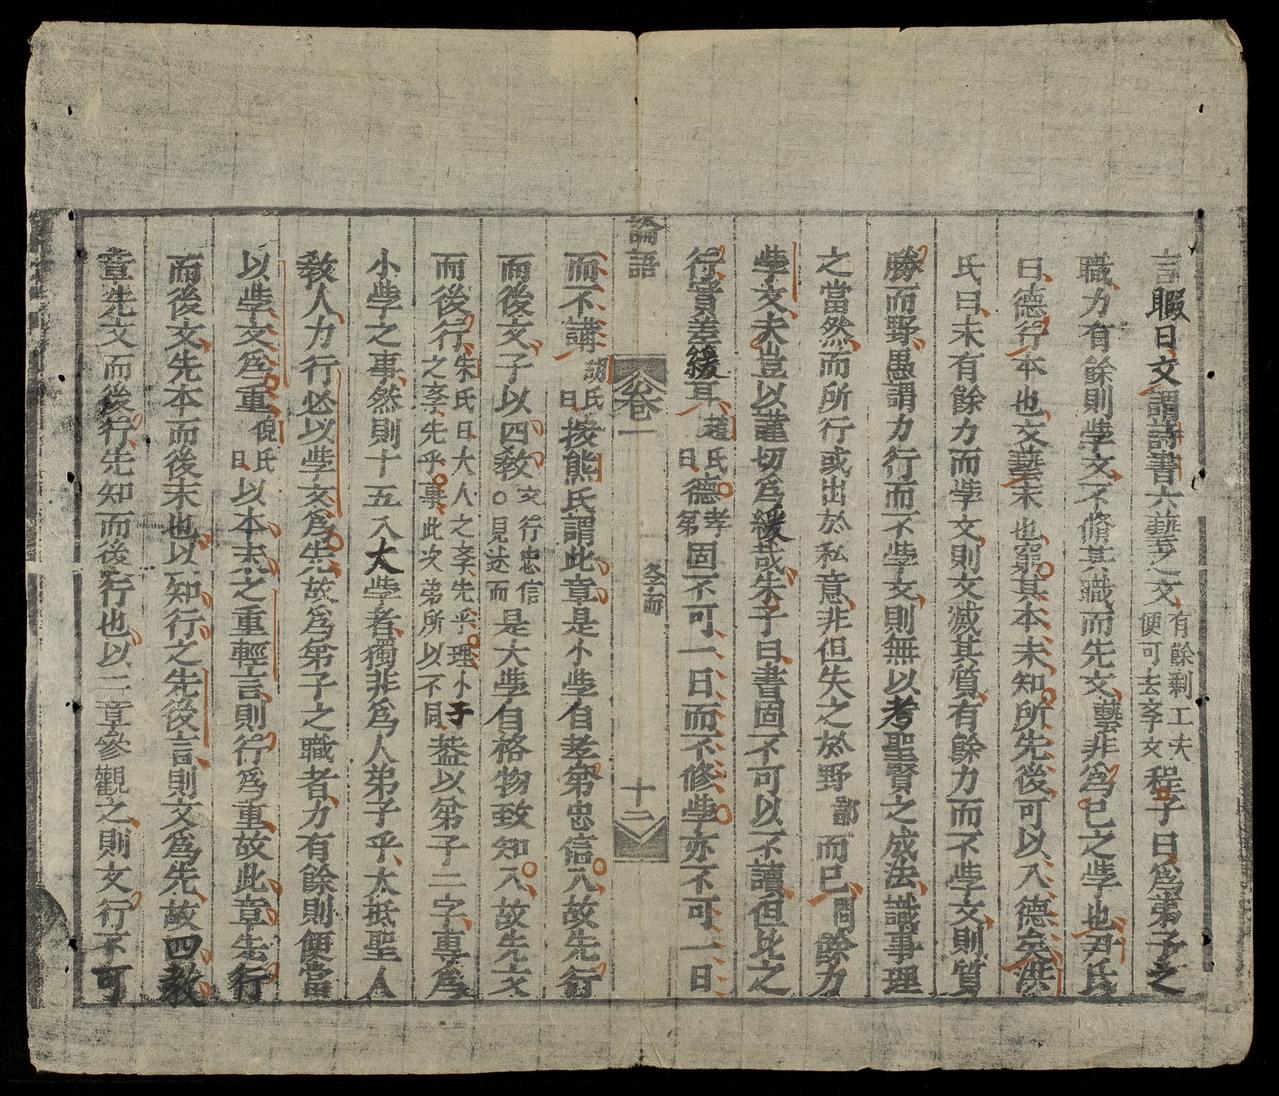 言暇日文謂詩書六藝之文有餘剩工夫便可去孝文程子曰爲弟子之
職力有餘則學文不脩其職而先文藝非爲已之學也尹氏
曰德行本也文藝末也窮其本末知所先後可以入德矣洪
氏曰未有餘力而學文則文滅其質有餘力而不學文則質
勝而野愚謂力行而不學文則無以考聖賢之成法識事理
之當然而所行或出於私意非但失之於野鄙而已問餘力
學文夫豈以謹切爲緩哉朱子曰書固不可以不讀但比之
行實差緩耳趙氏曰德孝第固不可一日而不修學亦不可一日
論語
卷一
冬而
十二
而不講胡氏曰按熊氏謂此章是小學自孝弟忠信入故先行
而後文子以四教文行忠信○見述而是大學自格物致知入故先文
而後行朱氏曰大人之孝先乎理小子之孝先乎事此次弟所以不同蓋以弟子二字專爲
小學之事然則十五入大學者獨非爲人弟子乎大抵聖人
教人力行必以學文爲先故爲弟子之職者力有餘則便當
以學文爲重倪氏曰以本末之重輕言則行爲重故此章先行
而後文先本而後末也以知行之先後言則文爲先故四教
章先文而後行先知而後行也以二章參觀之則文行不可